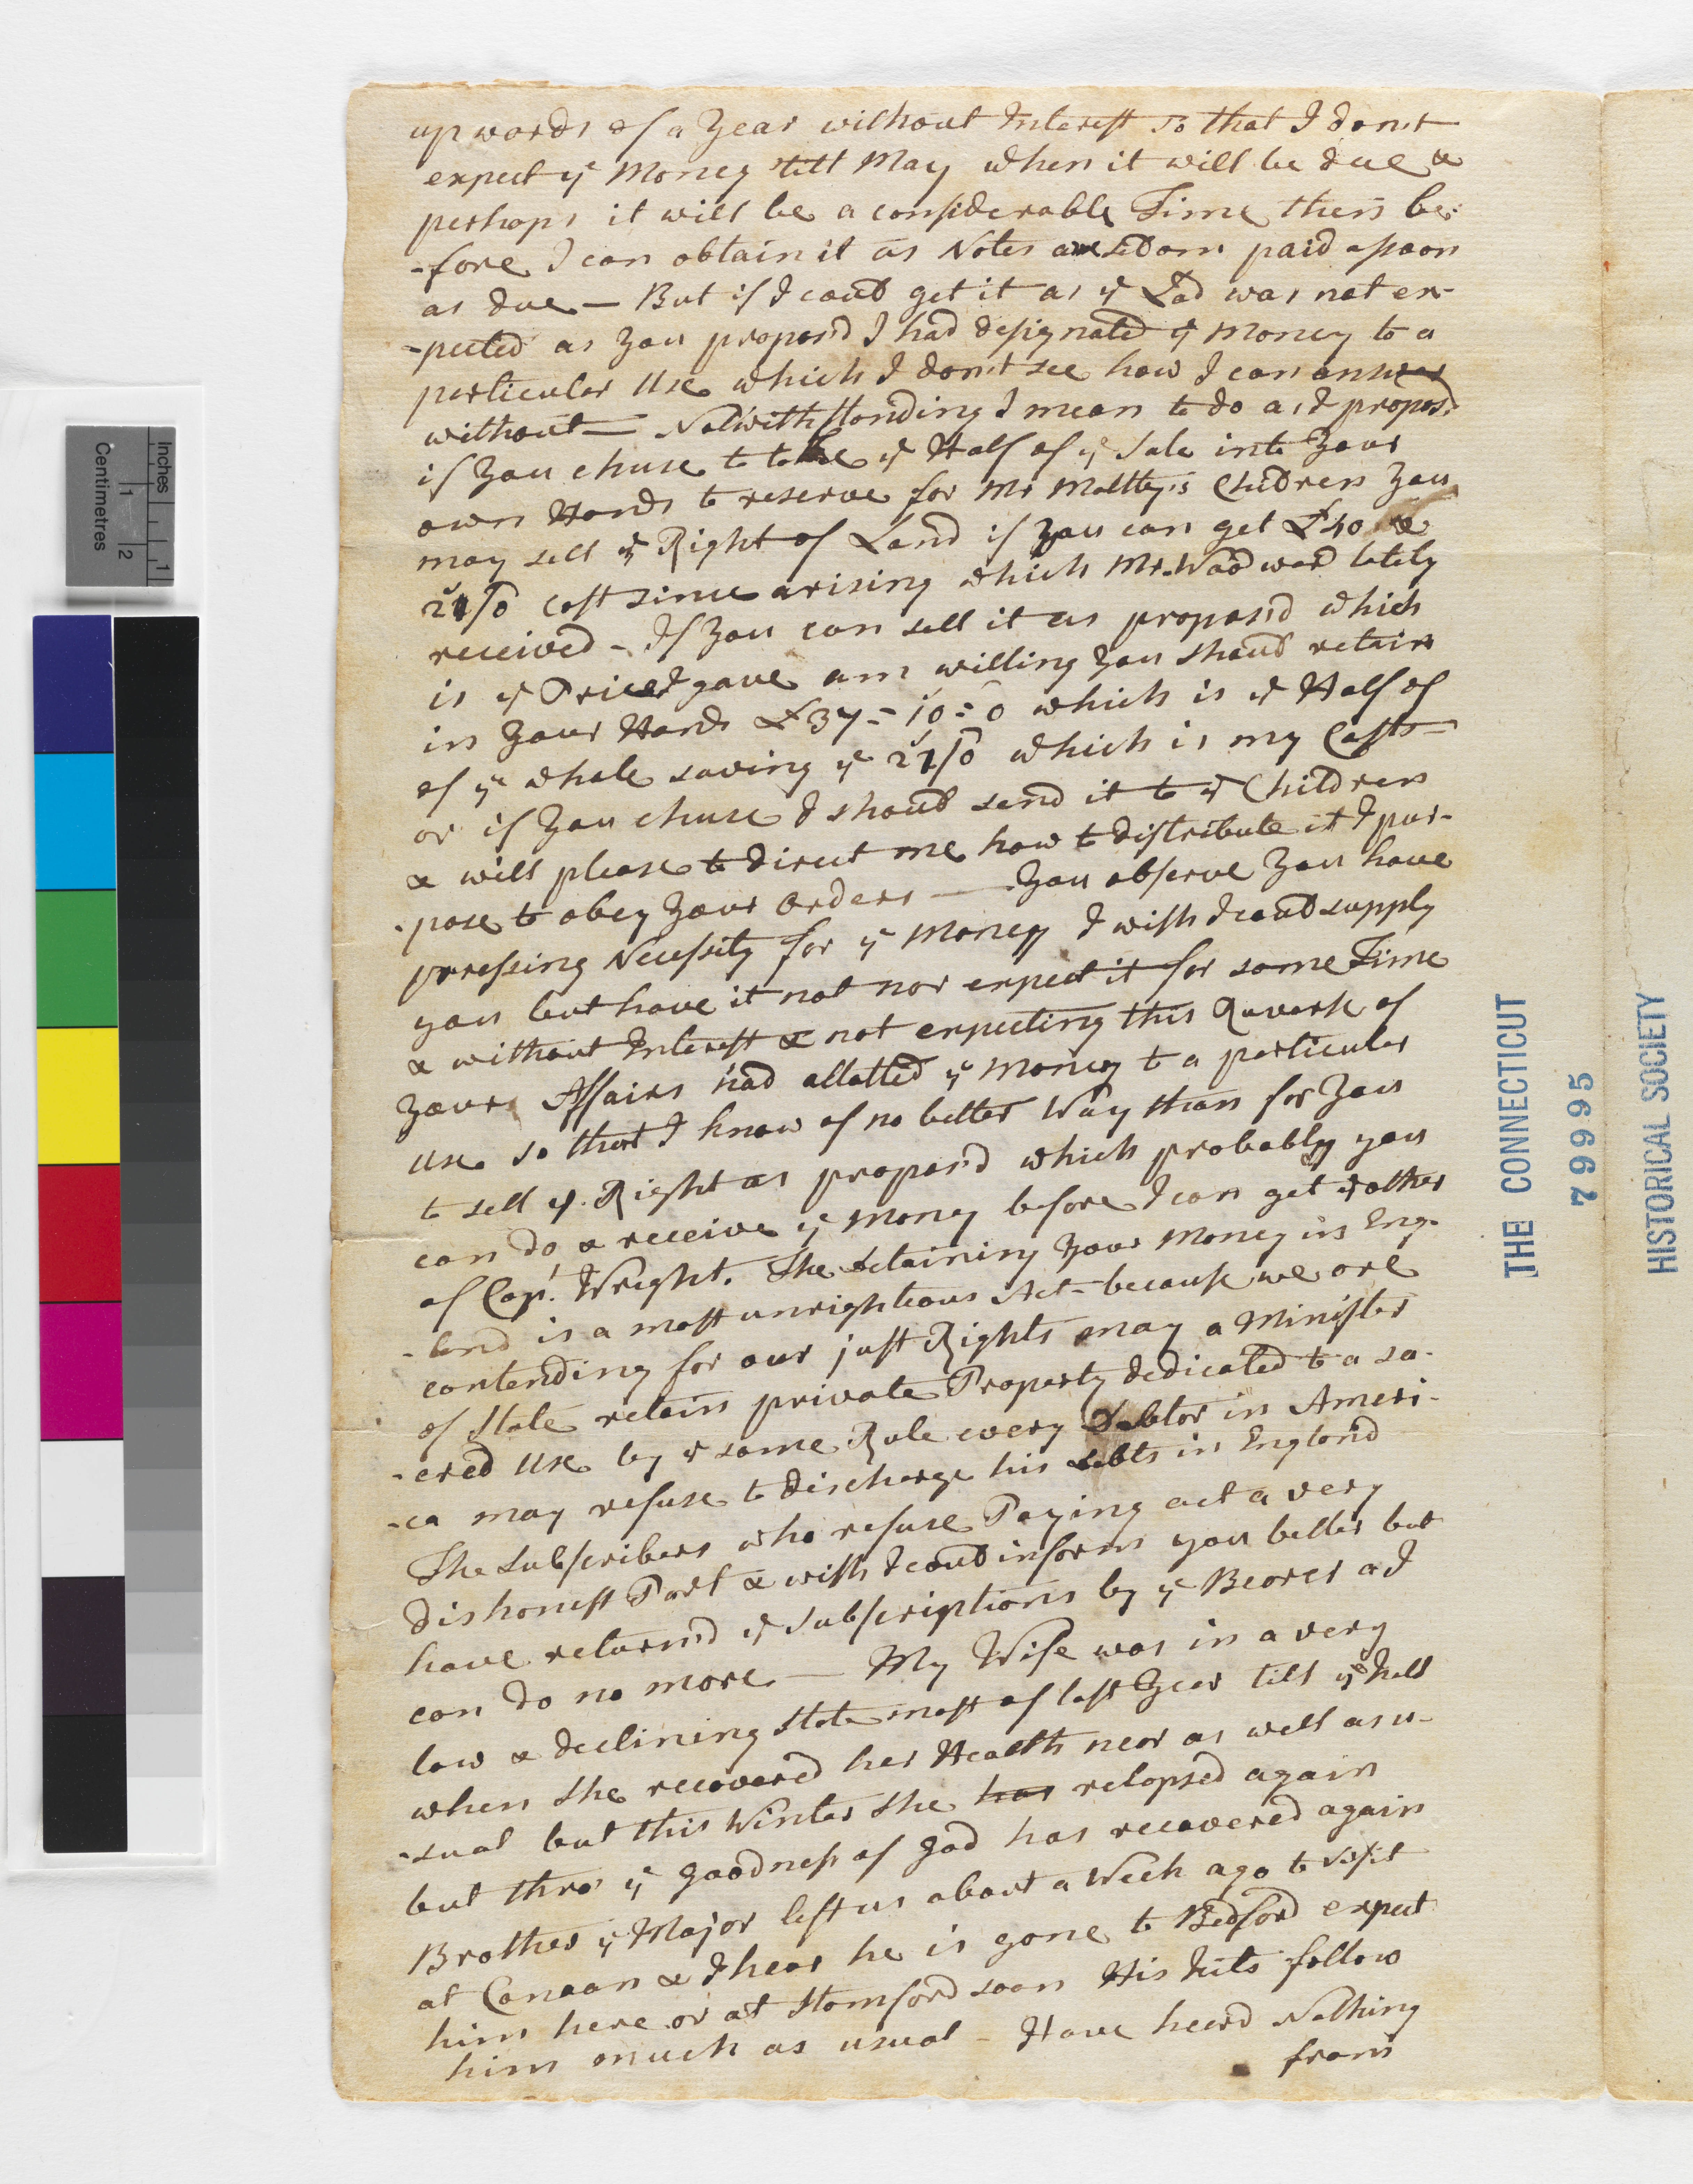 upwards of a Year without Interest so that I don't
expect ye Money till May when it will be due &
perhaps it will be a considerable Time then be-
-fore I can obtain it as Notes are seldom paid as soon
as due — But if I coud get it as ye Lad was not ex-
-pected as you propos'd I had designated ye Money to a
particular Use which I don't see how I can answer
without — Notwithstanding I mean to do as I propos'd
if you chuse to take ye Half of ye Sale into your
own Hands to reserve for Mr Maltby's Children you
may sell ye Right of Land if you can get £40 &
21/0 cost since arising which Mr. Wadward lately
received - If you can sell it as propos'd which
is ye Price I gave am willing you shoud retain
in your Hands £37=10=0 which is ye Half of
of ye whole saving ye 21/0 which is my Costs —
or if you chuse I shoud send it to ye Children
& will please to direct me how to distribute it I pur-
-pose to obey your Orders — You observe you have
pressing Necessity for ye Money I wish I coud supply
you but have it not nor expect it for some Time
& without Interest & not expecting this of
your Affairs had allotted ye Money to a particular
Use so that I know of no better Way than for you
to sell ye Right as propos'd which probably you
can do & receive ye Money before I can get ye other
of Capt. Wright. The detaining your Money in Eng-
-land is a most unrighteous Act - because we are
contending for our just Rights may a Minister
of State retain private Property dedicated to a sa-
-cred Use by ye same Rule every Debtor in Ameri-
-ca may refuse to discharge his debts in England
The Subscribers who refuse Paying act a very
dishonest Part & wish I coud inform you better but
have return'd ye Subscriptions by ye Bearer as I
can do no more — My Wife was in a very
low & declining State most of last Year till ye Fall
when she recovered her Health near as well as u-
-sual but this Winter she has relapsed again
but thro' ye goodness of God has recovered again
Brother ye Major left us about a Week ago to visit
at Canaan & I hear he is gone to Bedford expect
him here or at Stamford soon His Fits follow
him much as usual — Have heard Nothing
from
THE CONNECTICUT
79995
HISTORICAL SOCIETY
Inches
1
Centimetres
1
2